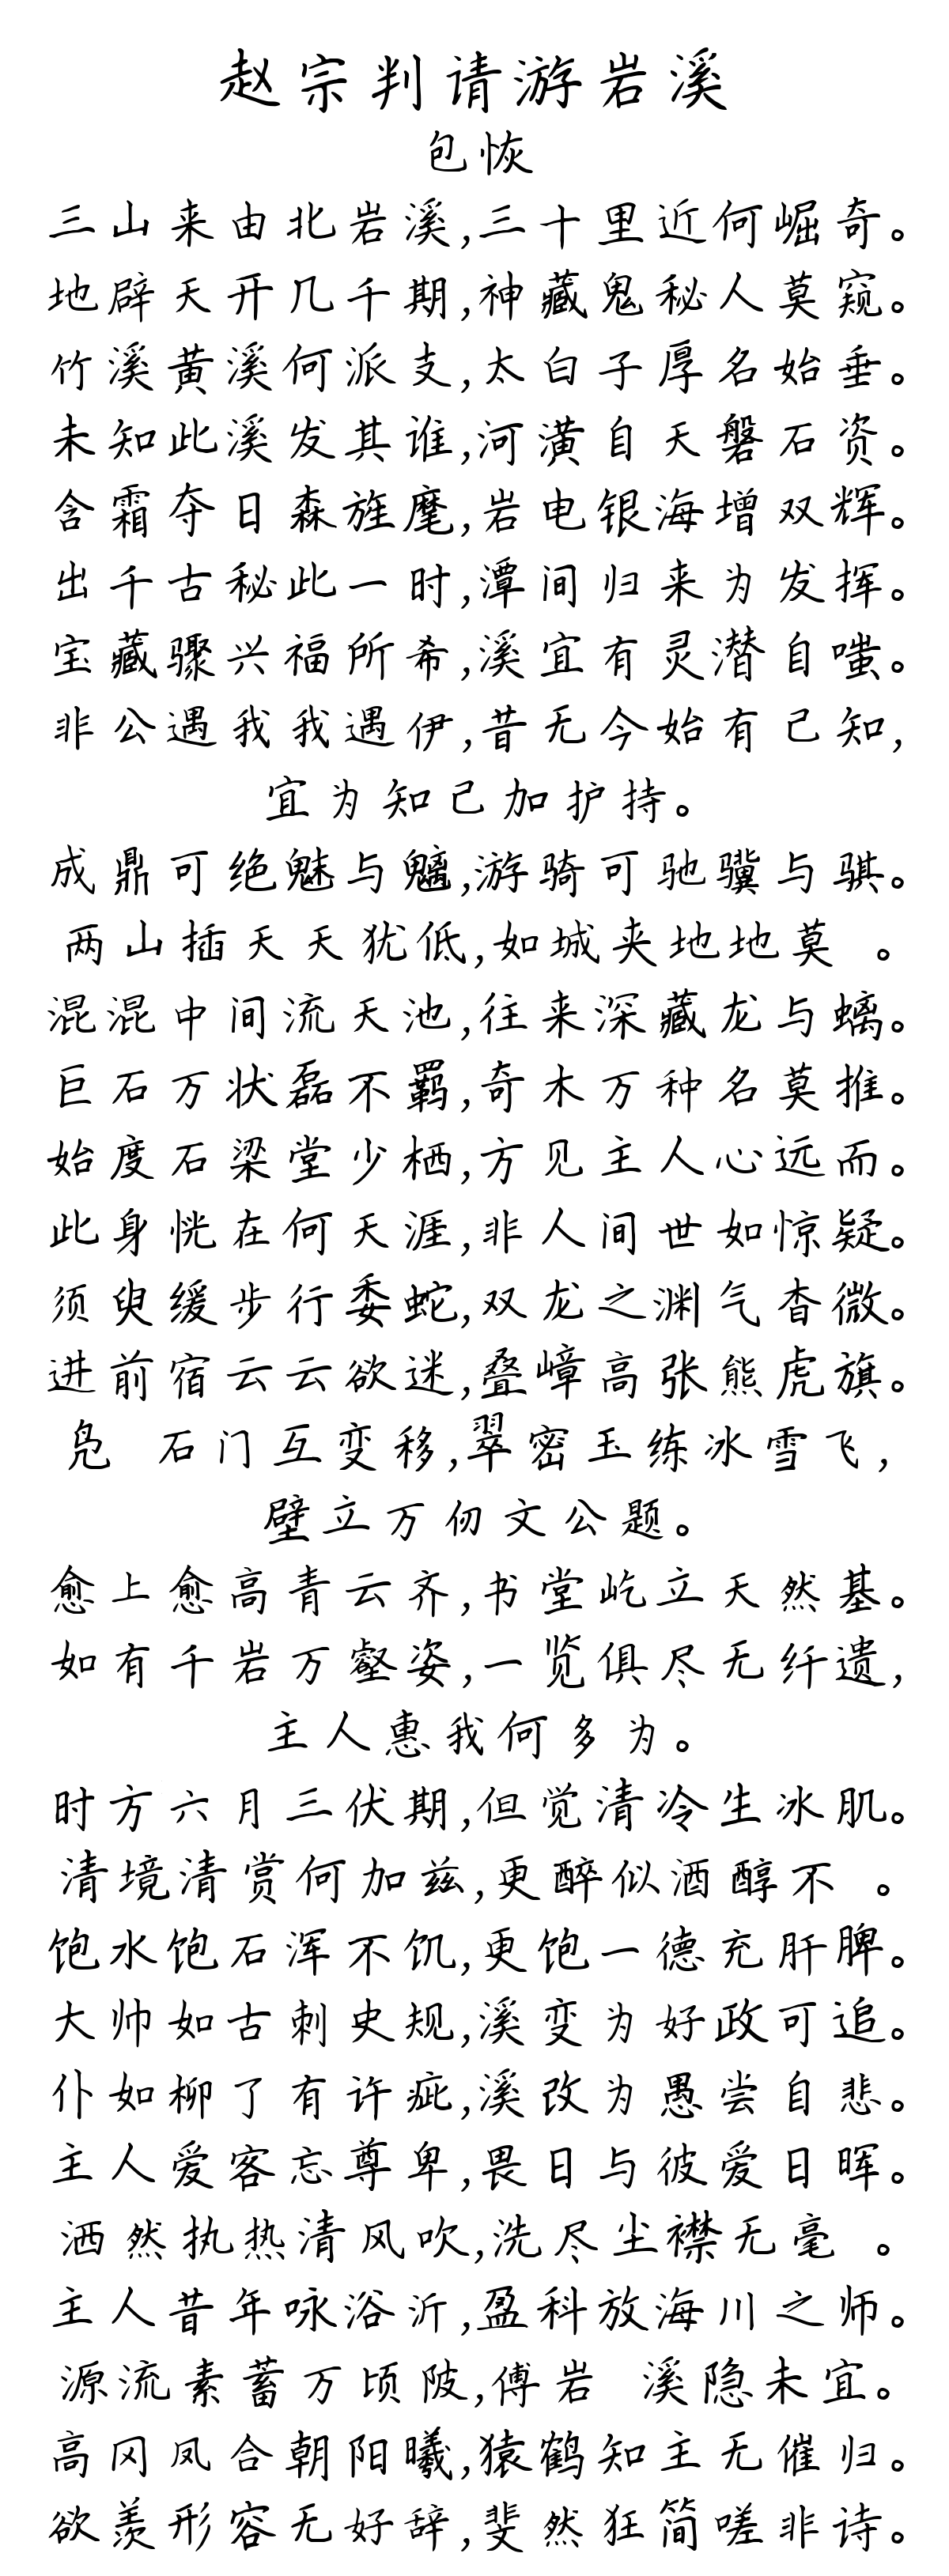 赵宗判请游岩溪
包恢
三山来由北岩溪,三十里近何崛奇。
地辟天开几千期,神藏鬼秘人莫窥。
竹溪黄溪何派支,太白子厚名始垂。
未知此溪发其谁,河潢自天磐石资。
含霜夺日森旌麾,岩电银海增双辉。
出千古秘此一时,潭间归来为发挥。
宝藏骤兴福所希,溪宜有灵潜自嗤。
非公遇我我遇伊,昔无今始有已知,
宜为知己加护持。
成鼎可绝魅与魑,游骑可驰骥与骐。
两山插天天犹低,如城夹地地莫 。
混混中间流天池,往来深藏龙与螭。
巨石万状磊不羁,奇木万种名莫推。
始度石梁堂少栖,方见主人心远而。
此身恍在何天涯,非人间世如惊疑。
须臾缓步行委蛇,双龙之渊气杳微。
进前宿云云欲迷,叠嶂高张熊虎旗。
凫 石门互变移,翠密玉练冰雪飞,
壁立万仞文公题。
愈上愈高青云齐,书堂屹立天然基。
如有千岩万壑姿,一览俱尽无纤遗,
主人惠我何多为。
时方六月三伏期,但觉清冷生冰肌。
清境清赏何加兹,更醉似酒醇不 。
饱水饱石浑不饥,更饱一德充肝脾。
大帅如古刺史规,溪变为好政可追。
仆如柳了有许疵,溪改为愚尝自悲。
主人爱客忘尊卑,畏日与彼爱日晖。
洒然执热清风吹,洗尽尘襟无毫 。
主人昔年咏浴沂,盈科放海川之师。
源流素蓄万顷陂,傅岩 溪隐未宜。
高冈凤合朝阳曦,猿鹤知主无催归。
欲羡形容无好辞,斐然狂简嗟非诗。